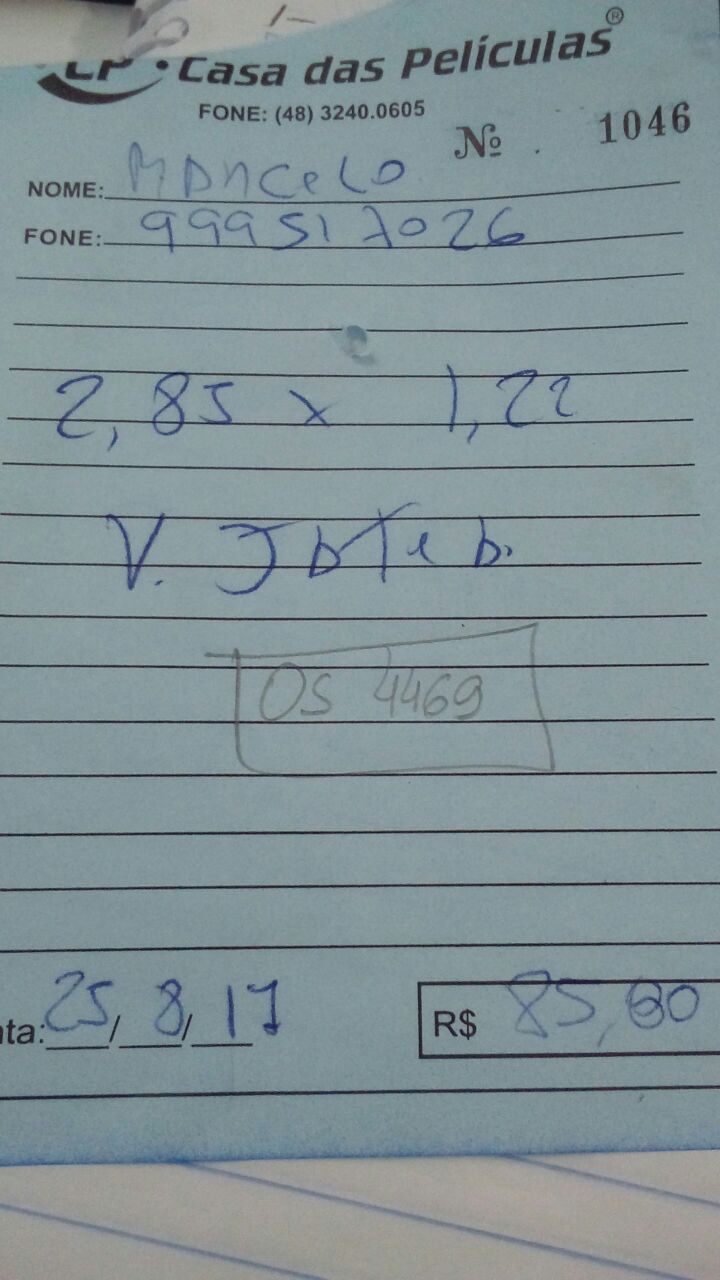 LP • Casa das Películas ®
FONE: (48) 3240.0605
Nº 1046
NOME: Marcelo
FONE: 999517026
2,85 x 1,22
V. Jateb.
OS 4469
ata: 25/8/17
R$ 85,00